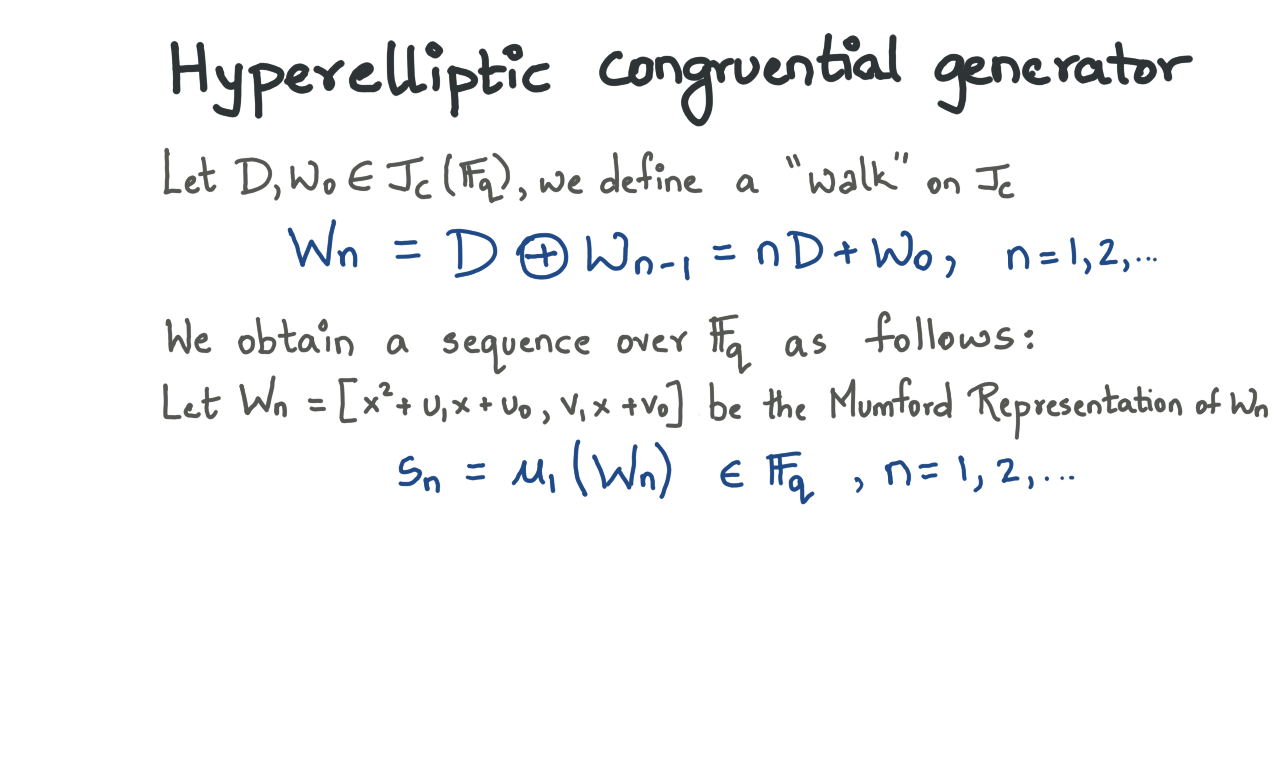 Hyperelliptic congruential generator
Let D, W₀ ∈ J_C (𝔽_q), we define a "walk" on J_C
W_n = D ⊕ W_{n-1} = nD + W₀, n = 1, 2, ...
We obtain a sequence over 𝔽_q as follows:
Let W_n = [x² + u₁x + u₀, v₁x + v₀] be the Mumford Representation of W_n
s_n = u₁ (W_n) ∈ 𝔽_q , n = 1, 2, ...